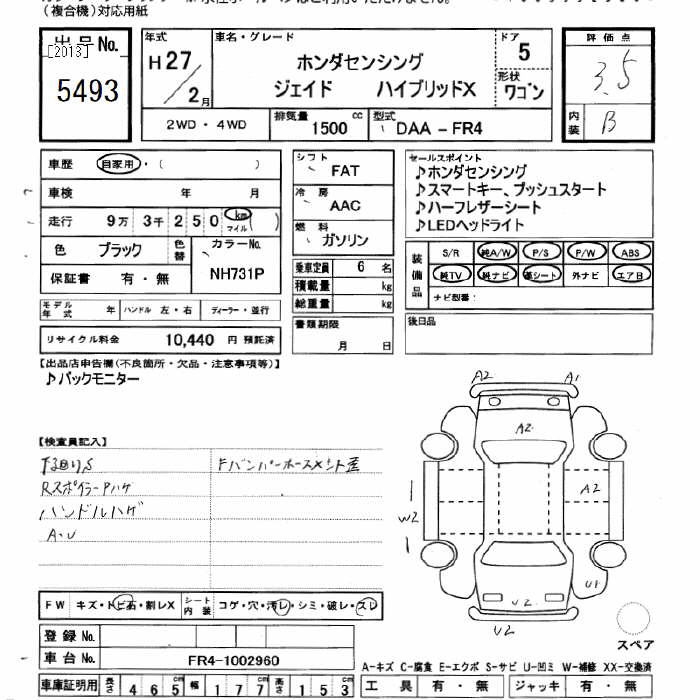 (複合機)対応用紙
出品No.
[2013]
5493
年式
H27/2月
車名・グレード
ホンダセンシング
ジェイド ハイブリッドX
ドア
5
形状
ワゴン
評価点
3.5
内装
B
2WD・4WD
排気量
1500 cc
型式
DAA-FR4
車歴 自家用・( )
車検 年 月
走行 9万 3千 2 5 0 km マイル ( )
色 ブラック 色替
カラーNo.
NH731P
保証書 有・無
モデル年式 年 ハンドル 左・右 ディーラー・並行
リサイクル料金 10,440 円 預託済
シフト
FAT
冷房
AAC
燃料
ガソリン
乗車定員 6 名
積載量 kg
総重量 kg
書類期限
月 日
セールスポイント
♪ホンダセンシング
♪スマートキー、プッシュスタート
♪ハーフレザーシート
♪LEDヘッドライト
装備品
S/R 純A/W P/S P/W ABS
純TV 純ナビ 革シート 外ナビ エアB
ナビ型番:
後日品
【出品店申告欄(不良箇所・欠品・注意事項等)】
♪バックモニター
【検査員記入】
Rスポイラーハゲ
ハンドルハゲ
A・U
A2 A1
A2
A2
W2
U1
U2
U2
スペア
FW キズ・トビ石・割レX シート内装 コゲ・穴・汚レ・シミ・破レ・スレ
登録No.
車台No. FR4-1002960
車庫証明用 長さ 465 cm 幅 177 cm 高さ 153 cm
A-キズ C-腐食 E-エクボ S-サビ U-凹ミ W-補修 XX-交換済
工具 有・無 ジャッキ 有・無